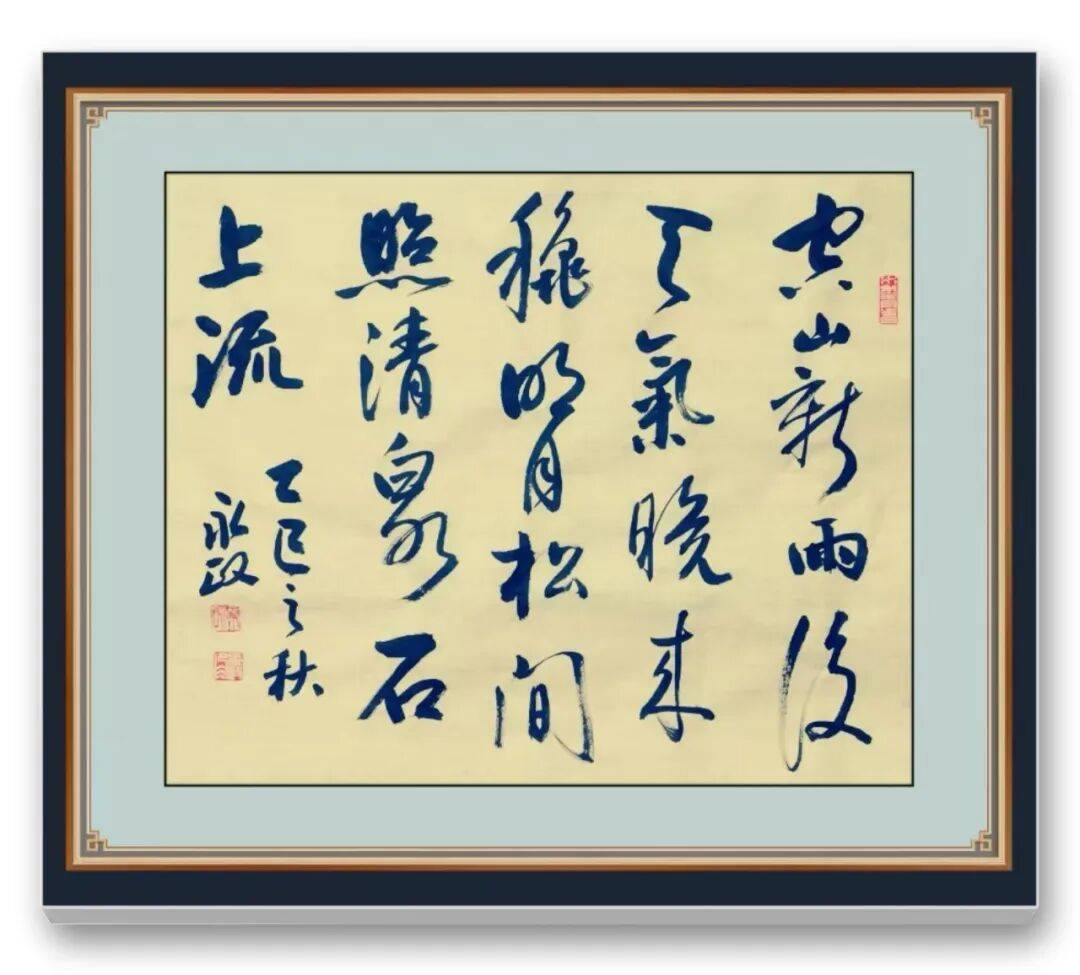 空山新雨後
天氣晚來
穐明月松間
照清泉石
上流
乙巳之秋
永政